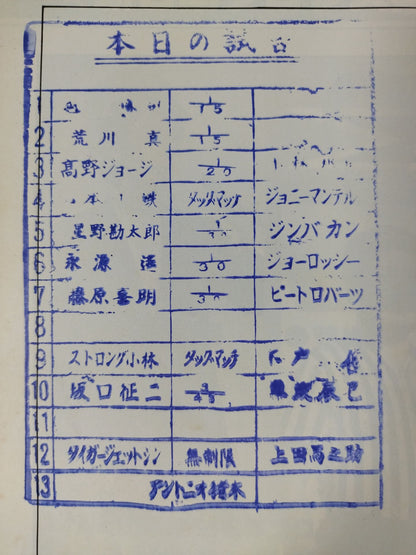 本日の試合
1 1/15
2 荒川 真 1/15
3 高野ジョージ 1/20
4 タッグ・マッチ ジョニーマンテル
5 星野勘太郎 1/30 ジンバカン
6 永源 遥 1/30 ジョーロッシー
7 藤原喜明 1/30 ピートロバーツ
8
9 ストロング小林 タッグ・マッチ 木戸 修
10 坂口征二 3/45 藤波辰巳
11
12 タイガージェットシン 無制限 上田馬之助
13 アントニオ猪木